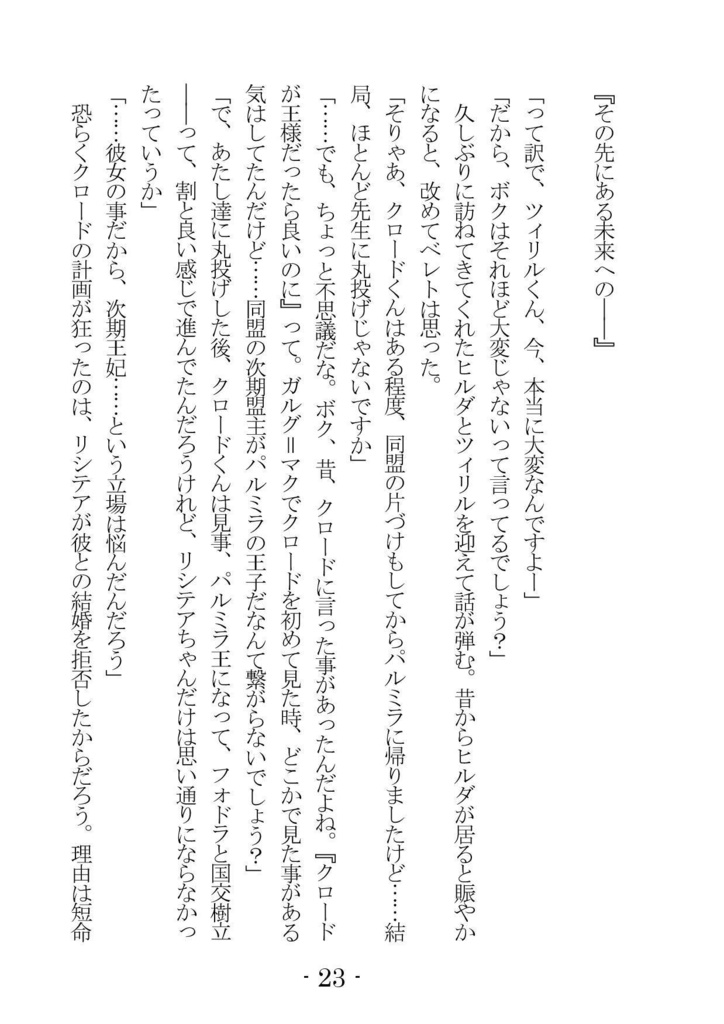 『その先にある未来への――』
「って訳で、ツィリルくん、今、本当に大変なんですよー」
「だから、ボクはそれほど大変じゃないって言ってるでしょう？」
久しぶりに訪ねてきてくれたヒルダとツィリルを迎えて話が弾む。昔からヒルダが居ると賑やか
になると、改めてベレトは思った。
「そりゃあ、クロードくんはある程度、同盟の片づけもしてからパルミラに帰りましたけど……結
局、ほとんど先生に丸投げじゃないですか」
「……でも、ちょっと不思議だな。ボク、昔、クロードに言った事があったんだよね。『クロード
が王様だったら良いのに』って。ガルグ＝マクでクロードを初めて見た時、どこかで見た事がある
気はしてたんだけど……同盟の次期盟主がパルミラの王子だなんて繋がらないでしょう？」
「で、あたし達に丸投げした後、クロードくんは見事、パルミラ王になって、フォドラと国交樹立
――って、割と良い感じで進んでたんだろうけれど、リシテアちゃんだけは思い通りにならなかっ
たっていうか」
「……彼女の事だから、次期王妃……という立場は悩んだんだろう」
恐らくクロードの計画が狂ったのは、リシテアが彼との結婚を拒否したからだろう。理由は短命
- 23 -